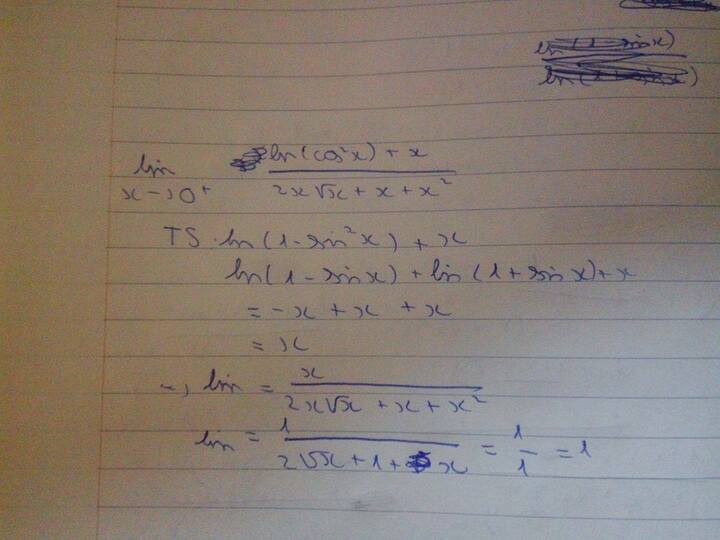 lim x→0+ ln(cos²x) + x / 2x√x + x + x²
TS: ln(1 - sin²x) + x
ln(1 - sinx) + ln(1 + sinx) + x
= -x + x + x
= x
→ lim = x / 2x√x + x + x²
lim = 1 / 2√x + 1 + x = 1/1 = 1